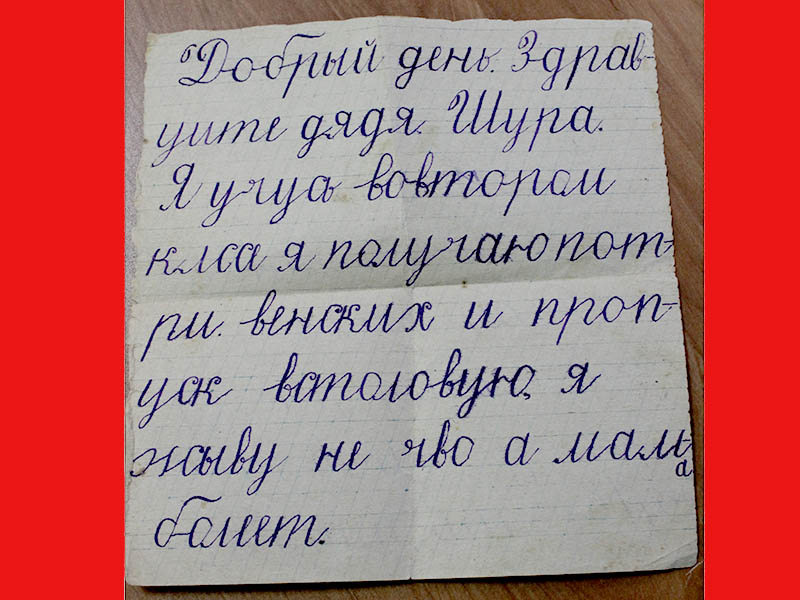 Добрый день. Здрав-
уите дядя. Шура.
Я учусь вовтором
клса я получаю пот-
ри. венских и проп-
уск встоловую, я
жыву не чво а мама
болеет.